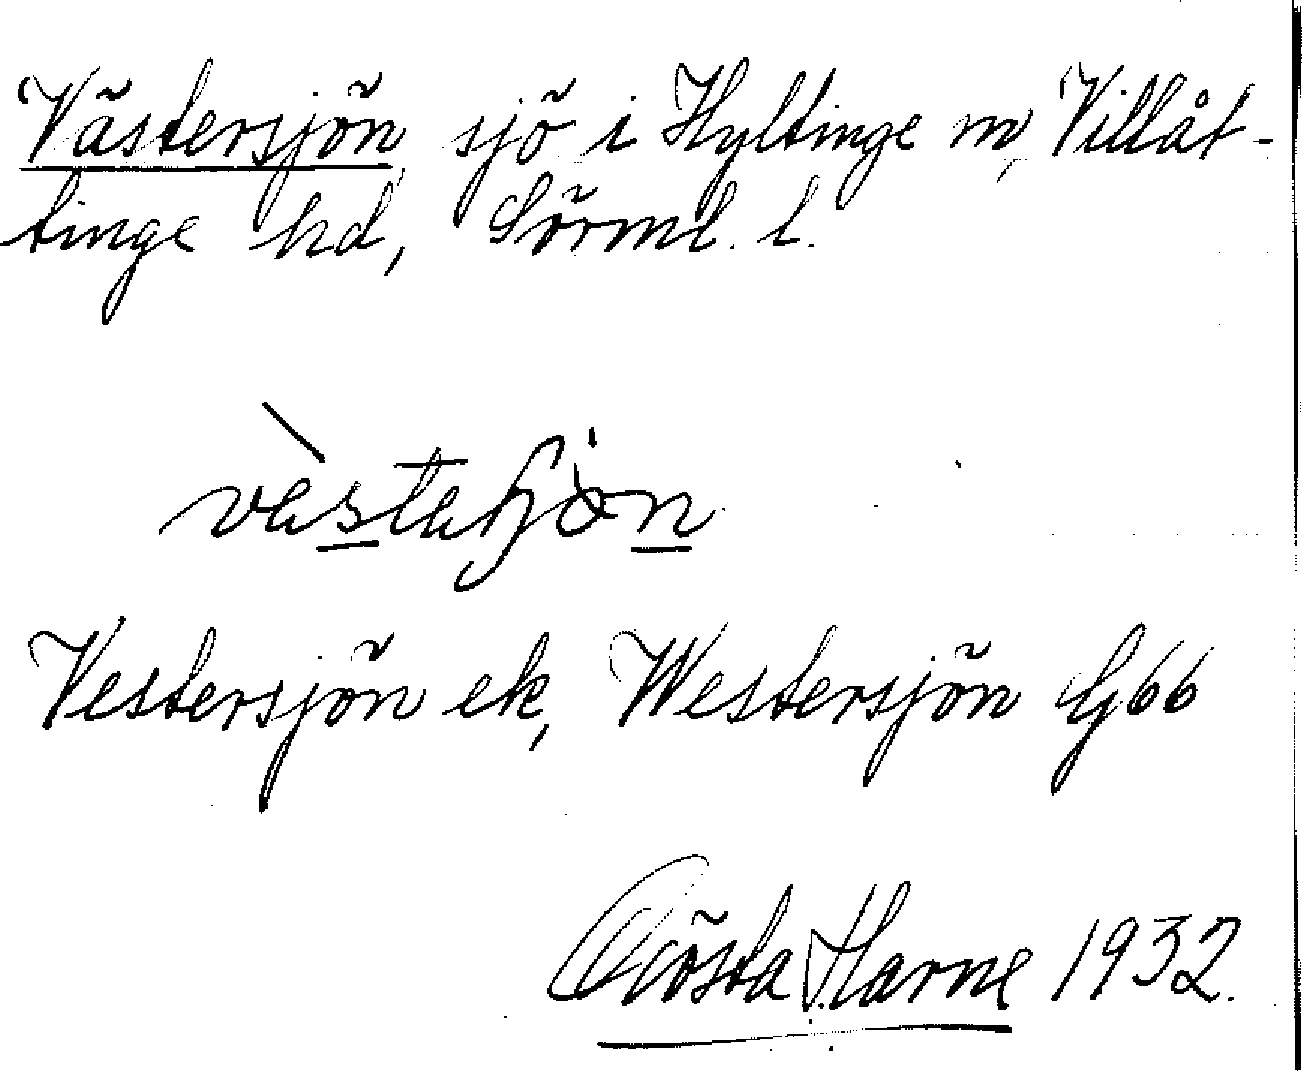 Västersjön, sjö i Hyltinge sn, Villåt-
tinge hd, Sörml. l.
Vestersjön ek, Westersjön G66
Gösta Harne 1932.